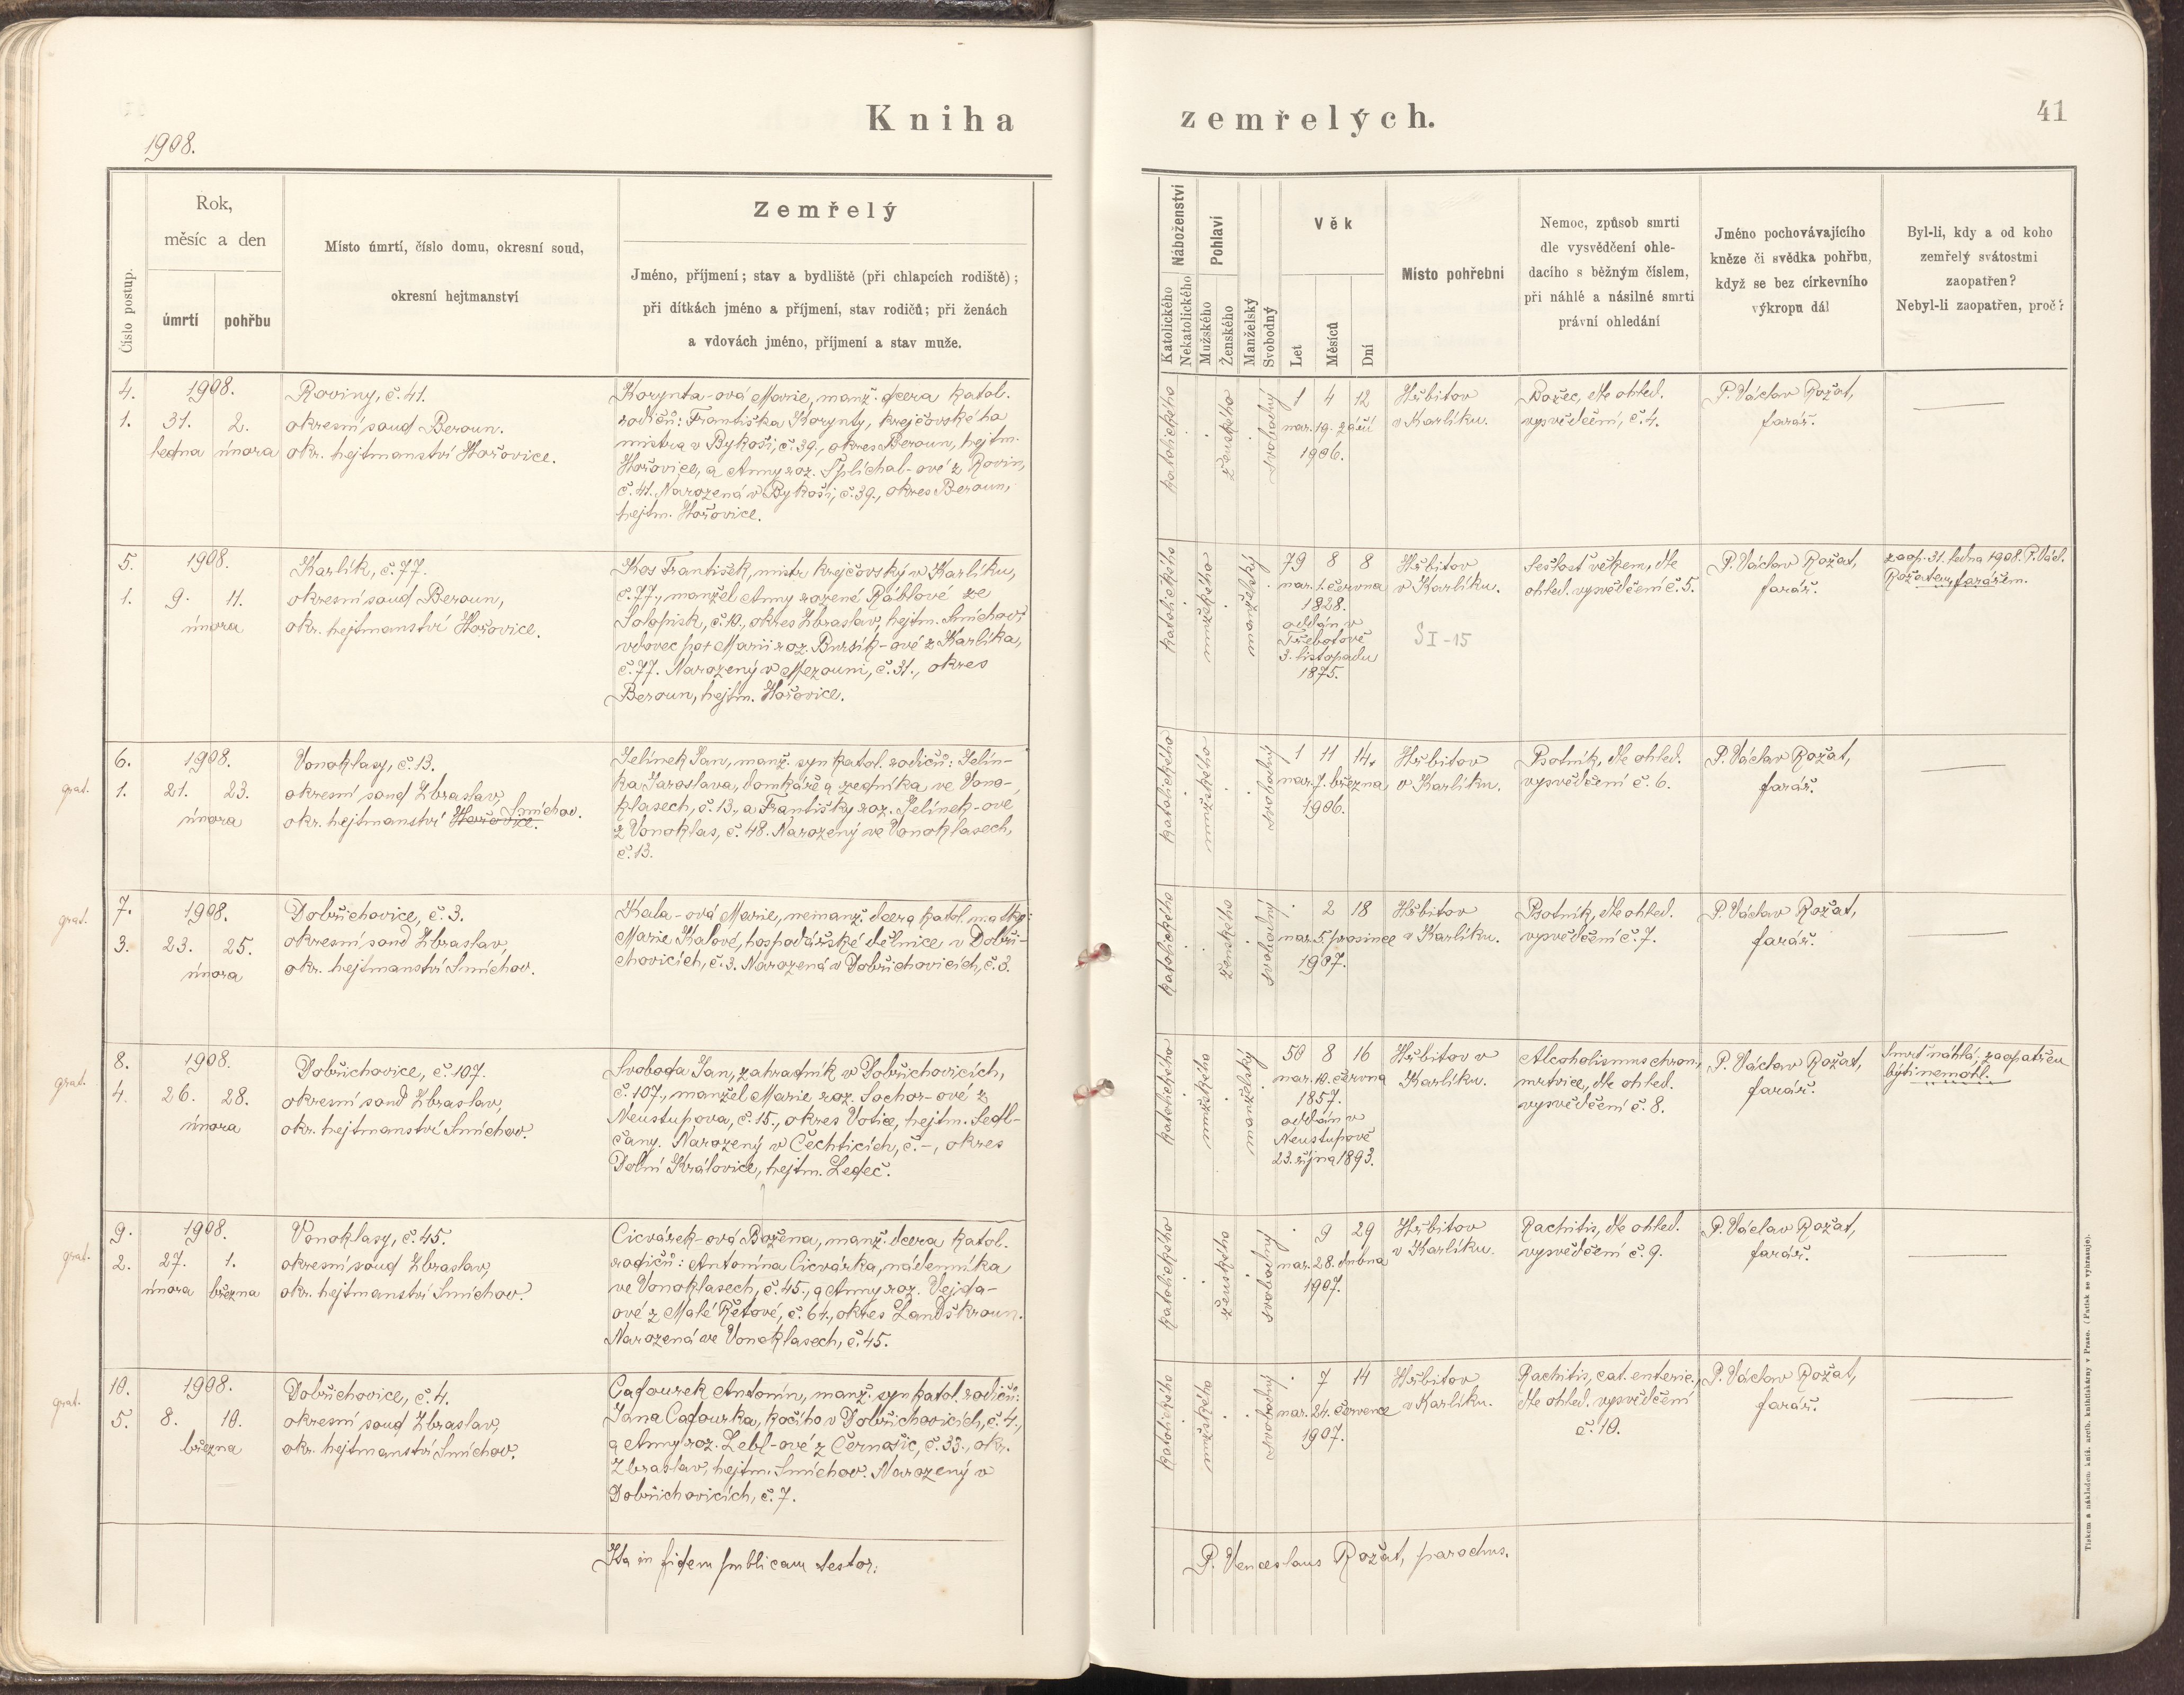 Kniha zemřelých.
41
1908.
Číslo postup.
Rok,
měsíc a den
úmrtí
pohřbu
Místo úmrtí, číslo domu, okresní soud,
okresní hejtmanství
Zemřelý
Jméno, příjmení; stav a bydliště (při chlapcích rodiště);
při dítkách jméno a příjmení, stav rodičů; při ženách
a vdovách jméno, příjmení a stav muže.
Náboženství
Katolického
Nekatolického
Pohlaví
Mužského
Ženského
Manželský
Svobodný
Věk
Let
Měsíců
Dní
Místo pohřební
Nemoc, způsob smrti
dle vysvědčení ohle-
dacího s běžným číslem,
při náhlé a násilné smrti
právní ohledání
Jméno pochovávajícího
kněze či svědka pohřbu,
když se bez církevního
výkropu dál
Byl-li, kdy a od koho
zemřelý svátostmi
zaopatřen?
Nebyl-li zaopatřen, proč?
4.
1.
1908.
31. 2.
ledna února
Roviny, č. 41.
okresní soud Beroun.
okr. hejtmanství Hořovice.
Korynta-ová Marie, manž. dcera katol.
rodičů: Františka Korynty, krejčovského
mistra v Bykoši, č. 39., okres Beroun, hejtm.
Hořovice, a Anny roz. Šplíchal-ové z Rovin,
č. 41. Narozená v Bykoši, č. 39., okres Beroun,
hejtm. Hořovice.
katolického
ženského
svobodný
1 4 12
nar. 19. září
1906.
Hřbitov
v Karlíku.
Božec, dle ohled.
vysvědčení, č. 4.
P. Václav Rožat,
farář.
5.
1.
1908.
9. 11.
února
Karlík, č. 77.
okresní soud Beroun,
okr. hejtmanství Hořovice.
Kos František, mistr krejčovský v Karlíku,
č. 77., manžel Anny rozené Ráblové ze
Solopisk, č. 10., okres Zbraslav, hejtm. Smíchov;
vdovec po + Marii roz. Bursík-ové z Karlíka,
č. 77. Narozený v Mezouni, č. 31., okres
Beroun, hejtm. Hořovice.
katolického
mužského
manželský
79 8 8
nar. 1. června
1828.
oddán v
Třebotově
3. listopadu
1875.
Hřbitov
v Karlíku.
SI-15
Sešlosť věkem, dle
ohled. vysvědčení č. 5.
P. Václav Rožat,
farář.
zaop. 31. ledna 1908. P. Václ.
Rožatem, farářem.
grat.
6.
1.
1908.
21. 23.
února
Vonoklasy, č. 13.
okresní soud Zbraslav,
Smíchov.
okr. hejtmanství Hořovice.
Jelínek Jan, manž. syn katol. rodičů: Jelín-
ka Jaroslava, domkáře a zedníka, ve Vono-
klasech, č. 13., a Františky roz. Jelínek-ové
z Vonoklas, č. 48. Narozený ve Vonoklasech,
č. 13.
katolického
mužského
svobodný
1 11 14.
nar. 7. března
1906.
Hřbitov
v Karlíku.
Psotník, dle ohled.
vysvědčení č. 6.
P. Václav Rožat,
farář.
grat.
7.
3.
1908.
23. 25.
února
Dobřichovice, č. 3.
okresní soud Zbraslav,
okr. hejtmanství Smíchov.
Kala-ová Marie, nemanž. dcera katol. matky:
Marie Kalové, hospodářské dělnice v Dobři-
chovicích, č. 3. Narozená v Dobřichovicích, č. 3.
katolického
ženského
svobodný
. 2 18
nar. 5. prosince
1907.
Hřbitov
v Karlíku.
Psotník, dle ohled.
vysvědčení č. 7.
P. Václav Rožat,
farář.
grat.
8.
4.
1908.
26. 28.
února
Dobřichovice, č. 107.
okresní soud Zbraslav,
okr. hejtmanství Smíchov.
Svoboda Jan, zahradník v Dobřichovicích,
č. 107., manžel Marie roz. Sochor-ové z
Neustupova, č. 15., okres Votice, hejtm. Sedl-
čany. Narozený v Čechticích, č. -, okres
Dolní Královice, hejtm. Ledeč.
katolického
mužského
manželský
50 8 16
nar. 10. června
1857.
oddán v
Neustupově
23. října 1893.
Hřbitov v
Karlíku.
Alcoholismus chron.,
mrtvice, dle ohled.
vysvědčení č. 8.
P. Václav Rožat,
farář.
Smrť náhlá; zaopatřen
býti nemohl.
grat.
9.
2.
1908.
27. 1.
února března
Vonoklasy, č. 45.
okresní soud Zbraslav,
okr. hejtmanství Smíchov.
Cicvárek-ová Božena, manž. dcera katol.
rodičů: Antonína Cicvárka, nádenníka
ve Vonoklasech, č. 45., a Anny roz. Vejda-
ové z Malé Řetové, č. 64., okres Landškroun.
Narozená ve Vonoklasech, č. 45.
katolického
ženského
svobodný
. 9 29
nar. 28. dubna
1907.
Hřbitov
v Karlíku.
Rachitis, dle ohled.
vysvědčení č. 9.
P. Václav Rožat,
farář.
grat.
10.
5.
1908.
8. 10.
března
Dobřichovice, č. 4.
okresní soud Zbraslav,
okr. hejtmanství Smíchov.
Cafourek Antonín, manž. syn katol. rodičů:
Jana Cafourka, kočího v Dobřichovicích, č. 4.,
a Anny roz. Lebl-ové z Černošic, č. 33., okr.
Zbraslav, hejtm. Smíchov. Narozený v
Dobřichovicích, č. 7.
katolického
mužského
svobodný
. 7 14
nar. 24. července
1907.
Hřbitov
v Karlíku.
Rachitis, cat. enteric.,
dle ohled. vysvědčení
č. 10.
P. Václav Rožat,
farář.
Ita in fidem publicam testor:
P. Venceslaus Rožat, parochus.
Tiskem a nákladem kníž. arcib. knihtiskárny v Praze. (Patisk se vyhrazuje).